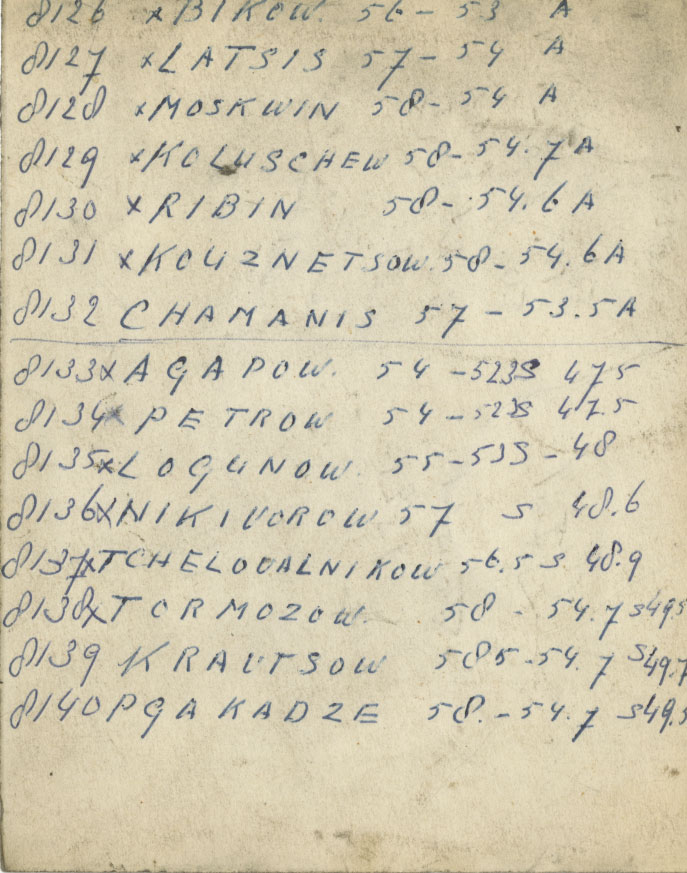 8126 xBIKOW. 56 - 53 A
8127 xLATSIS 57 - 54 A
8128 xMOSKWIN 58 - 54 A
8129 xKOLUSCHEW 58 - 54.7 A
8130 xRIBIN 58 - 54.6 A
8131 xKOUZNETSOW. 58 - 54.6 A
8132 CHAMANIS 57 - 53.5 A
8133 x AGAPOW. 54 - 523 S 475
8134 x PETROW 54 - 523 S 47.5
8135 x LOGUNOW. 55 - 53 S - 48
8136 x NIKIVOROW 57 S 48.6
8137 x TCHELOVALNIKOW 56.5 S 48.9
8138 x TORMOZOW. 58 - 54.7 S 49.5
8139 KRAVTSOW 585 - 54.7 S 49.7
8140 PGAKADZE 58. - 54.7 S 49.5